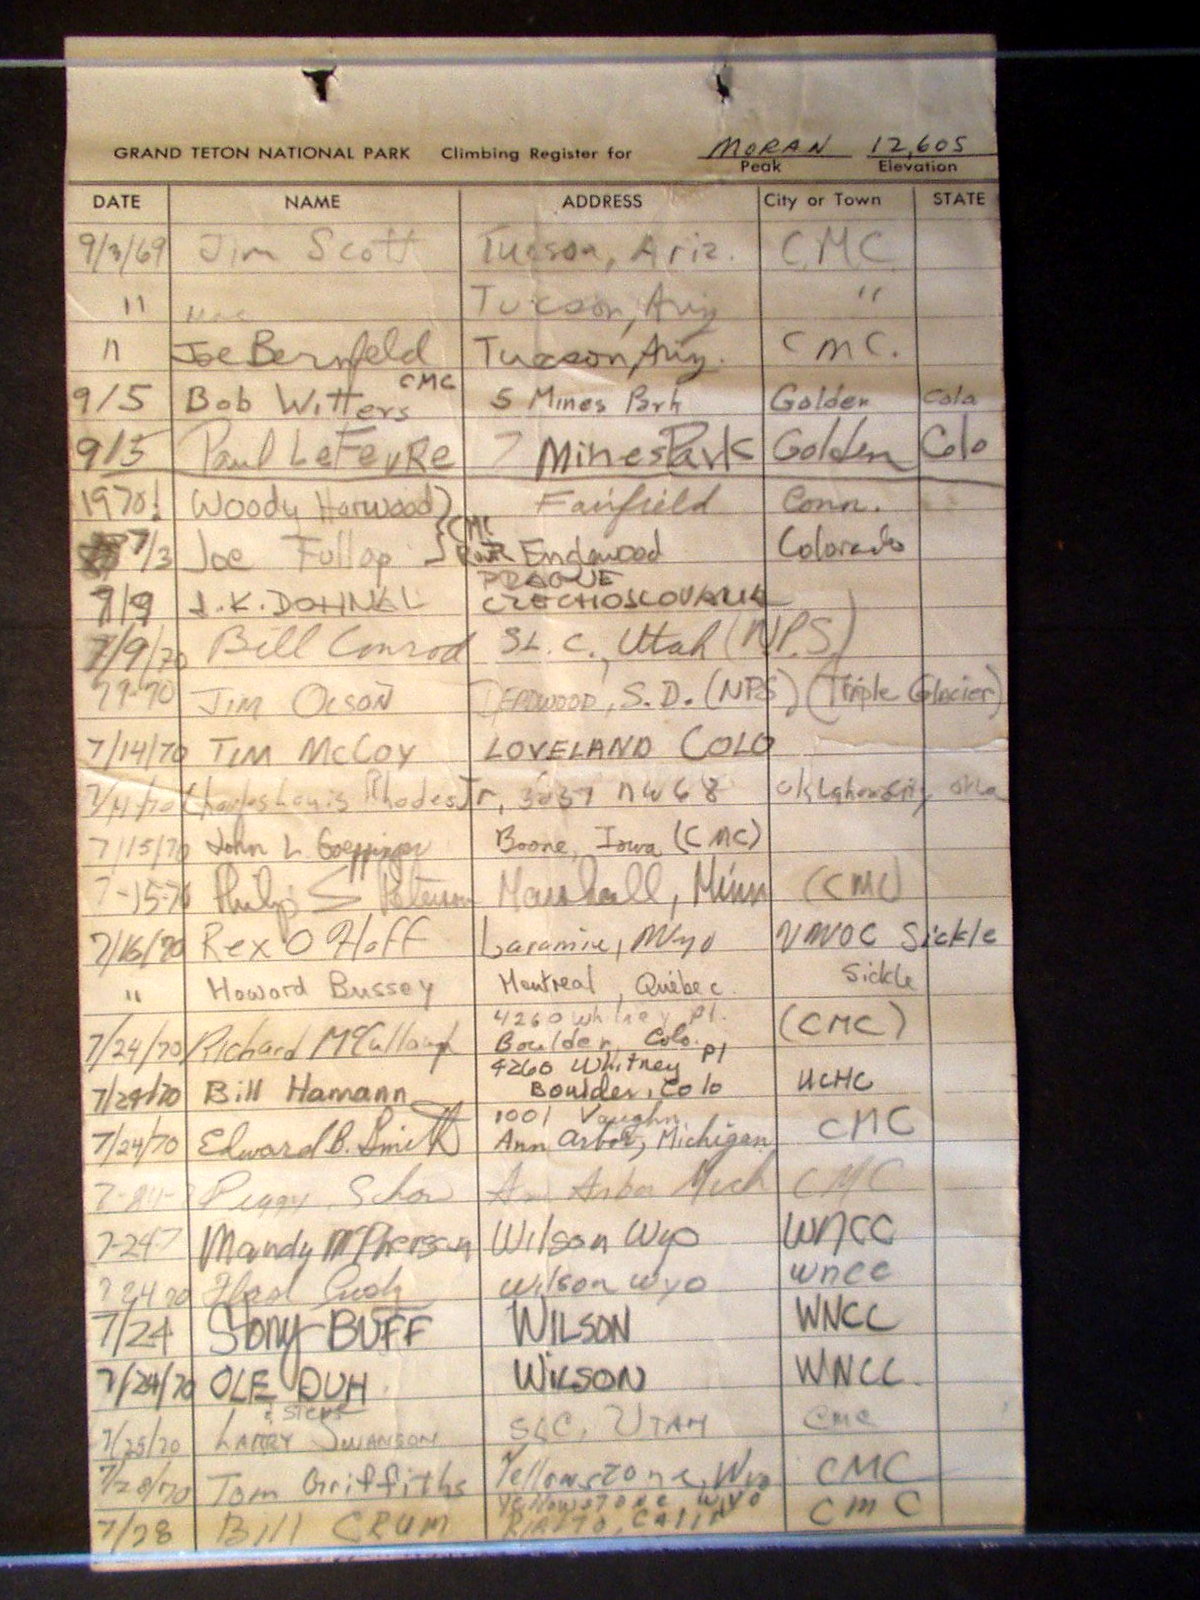 GRAND TETON NATIONAL PARK Climbing Register for MORAN 12,605
Peak Elevation
DATE NAME ADDRESS City or Town STATE
9/3/69 Jim Scott Tucson, Ariz. CMC
" Tucson, Ariz "
" Joe Bernfeld Tucson, Ariz. CMC.
9/5 Bob Witters CMC 5 Mines Park Golden Colo
9/5 Paul LeFevRe 7 Mines Park Golden Colo
1970! Woody Harwood Fairfield Conn.
7/3 Joe Fullop CMC Colorado
PRAGUE
9/9 J.K. DOHNAL CZECHOSLOVAKIA
7/9/70 Bill Conrod SL.C., Utah (N.P.S.)
7 9-70 Jim OLSON DEADWOOD, S.D. (NPS) (Triple Glacier)
7/14/70 TIM McCoy LOVELAND COLO
Charles Louis Rhodes Jr, 3037 NW 68 Oklahoma City, okla
7/15/70 John L. Goeppinger Boone, Iowa (CMC)
7-15-70 Philip S Peterson Marshall, Minn (CMC)
7/16/70 Rex O Hoff Laramie, Wyo Sickle
" Howard Bussey Montreal, Québec. Sickle
4260 Whitney Pl.
7/24/70 Richard McCullough Boulder, Colo. (CMC)
4260 Whitney Pl
7/24/70 Bill Hamann Boulder, Colo UCHC
1001 Vaughn
7/24/70 Edward B. Smith Ann Arbor, Michigan CMC
Peggy Ann Arbor Mich CMC
7-24 7 Mandy McPherson Wilson Wyo WNCC
7 24 70 Wilson Wyo WNCC
7/24 Stony BUFF WILSON WNCC
7/24/70 OLE DUH WILSON WNCC.
7/25/70 LARRY SWANSON SLC, UTAH CMC
7/28/70 Tom Griffiths Yellowstone, Wyo CMC
Yellowstone, WYO
7/28 Bill CRUM RIALTO, CALIF CMC